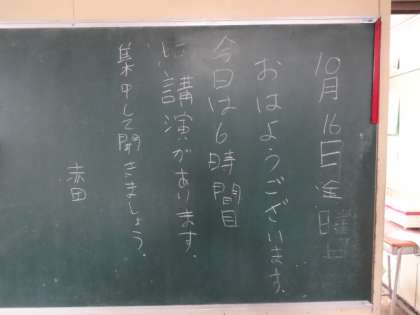 10月16日金曜日
おはようございます。
今日は6時間目
に講演があります。
集中して聞きましょう。
赤田